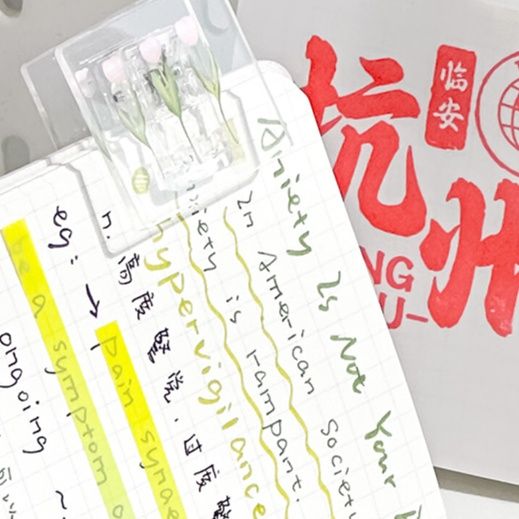 杭州
临安
NG
U-
Anxiety Is Not Your
In American society
anxiety is rampant.
hypervigilance
n. 高度警觉
eg: → pain
be a symptom o
ongoing